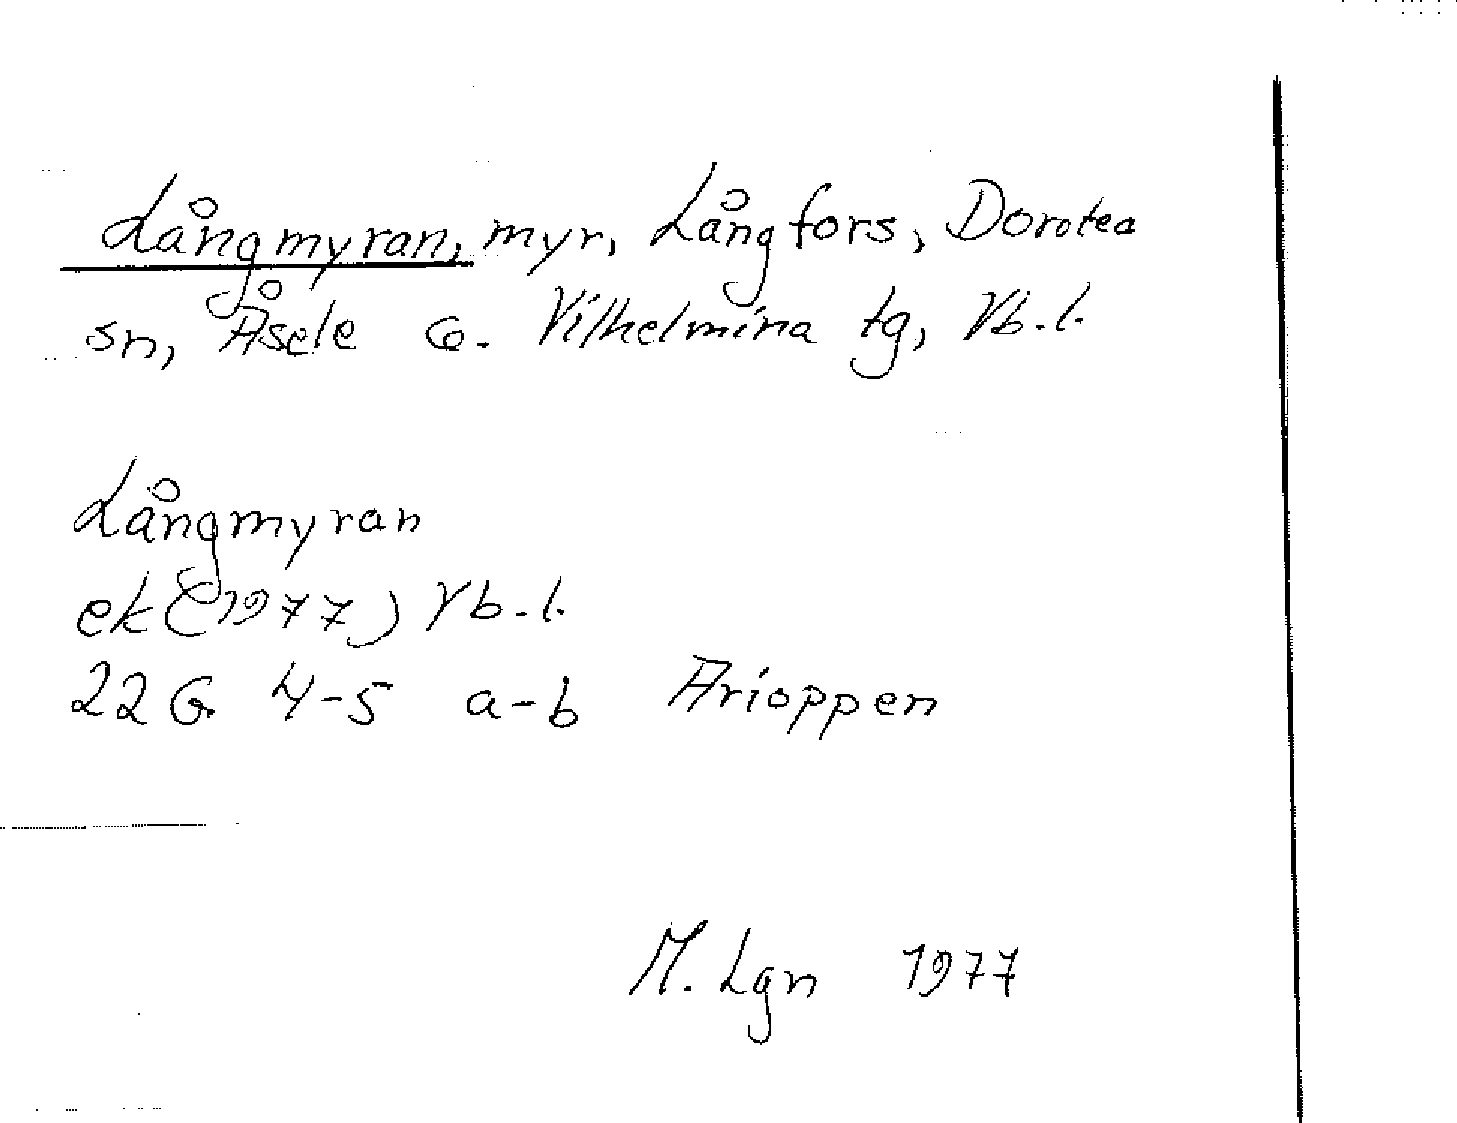 Långmyran, myr, Långfors, Dorotea
sn, Åsele o. Vilhelmina tg, Vb.l.
Långmyran
ek (1977) Vb.l.
22G 4-5 a-b Arioppen
M. Lgn 1977